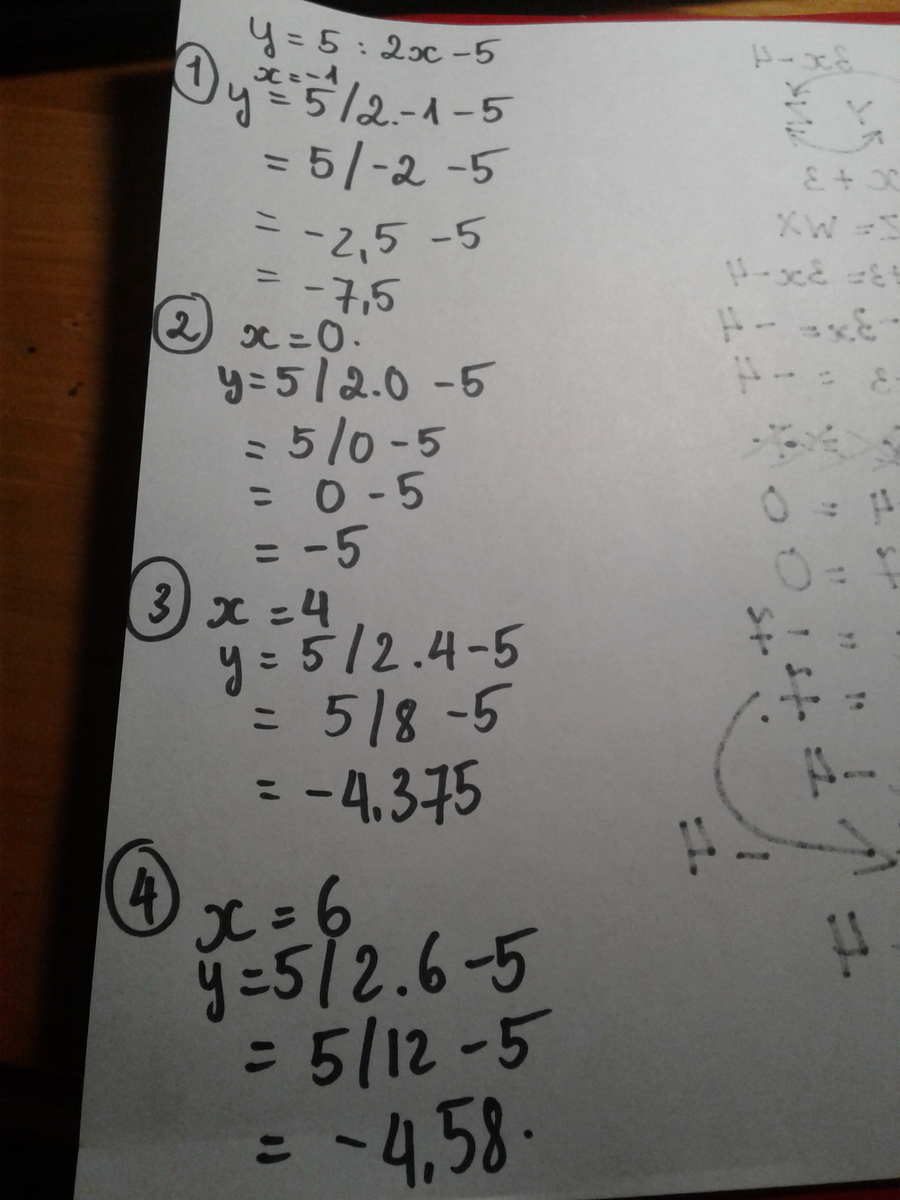 y = 5 : 2x - 5
① x = -1
y = 5 / 2.-1 - 5
= 5 / -2 - 5
= -2,5 - 5
= -7,5
② x = 0.
y = 5 / 2.0 - 5
= 5 / 0 - 5
= 0 - 5
= -5
③ x = 4
y = 5 / 2.4 - 5
= 5 / 8 - 5
= -4.375
④ x = 6
y = 5 / 2.6 - 5
= 5 / 12 - 5
= -4,58.